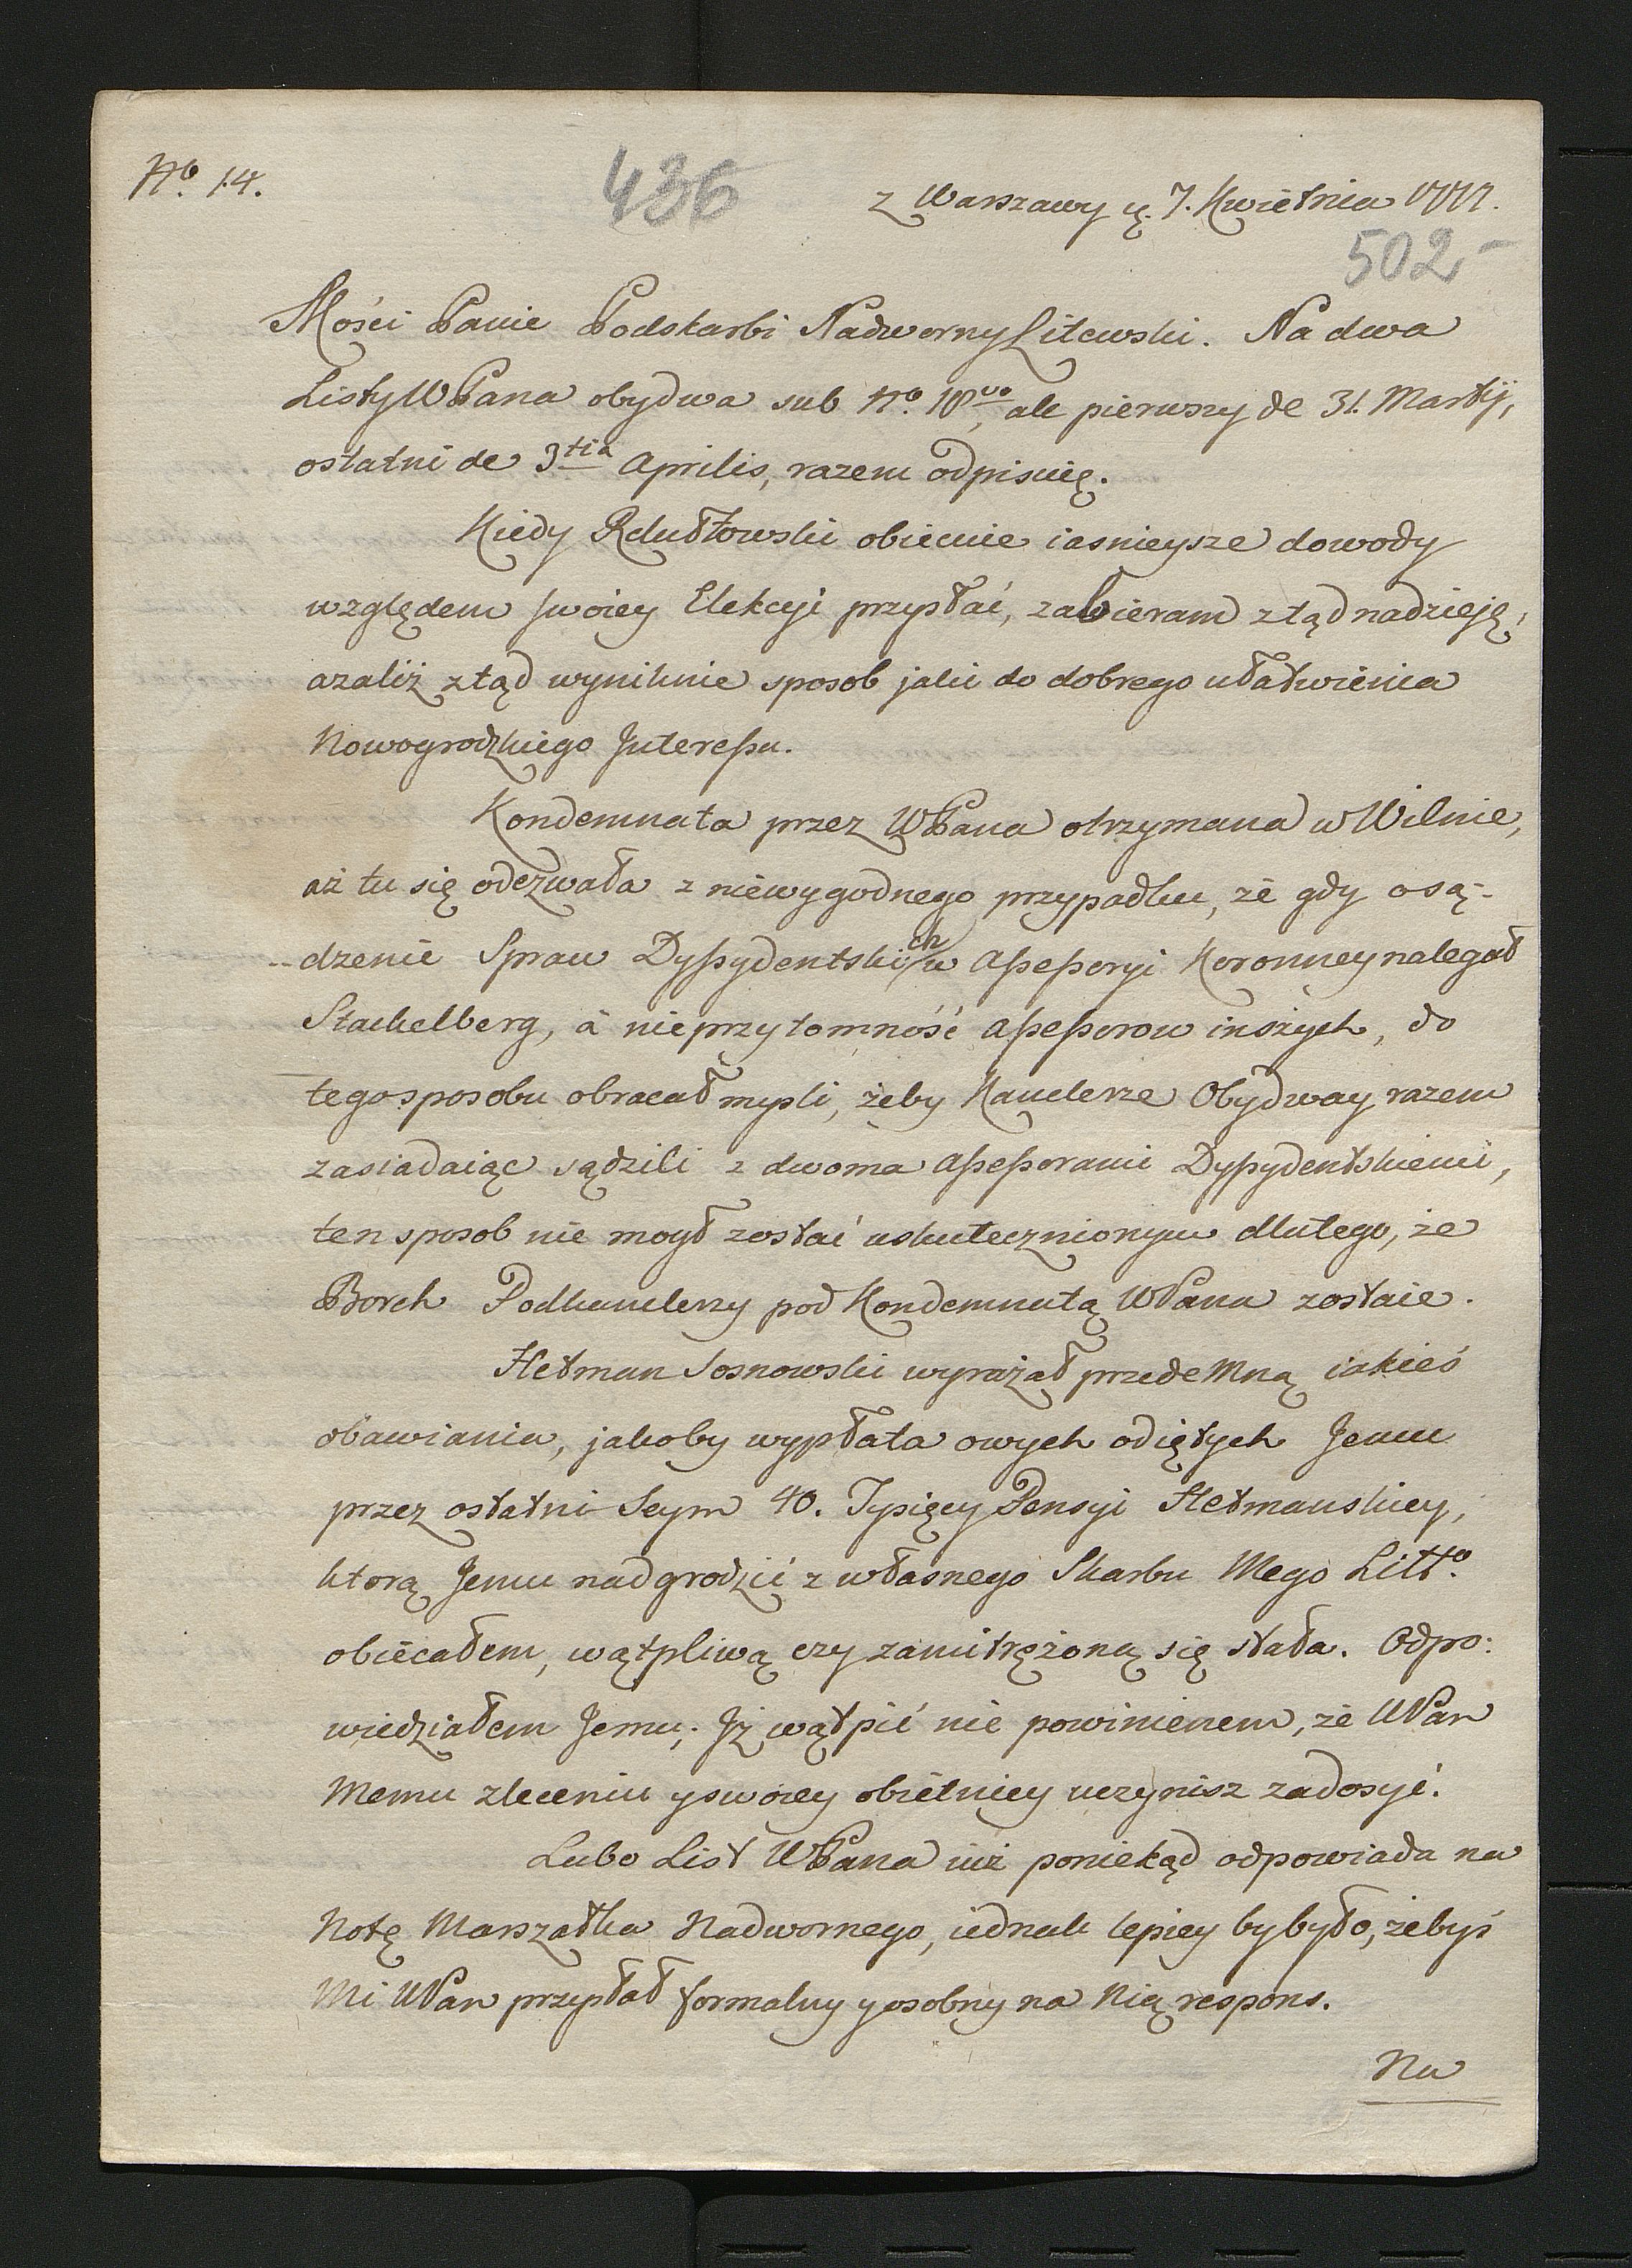 No. 14.
436
z Warszawy d. 7. Kwietnia 1777.
502-
Mości Panie Podskarbi Nadworny Litewski. Na dwa
Listy WPana obydwa sub No. 10mo, ale pierwszy de 31. Martij,
ostatni de 3tia Aprilis, razem odpisuię.
Kiedy Rdułtowski obiecuie iasnieysze dowody
względem swoiey Elekcyi przysłać, zabieram ztąd nadzieję,
azaliż ztąd wyniknie sposob jaki do dobrego ułatwienia
Nowogrodzkiego Interessu.
Kondemnata przez WPana otrzymana w Wilnie,
aż tu się odezwała z niewygodnego przypadku, że gdy o są-
-dzenie Spraw Dyssydentskich w Assessoryi Koronney nalegał
Stackelberg, à nieprzytomność Assessorow inszych, do
tego sposobu obracał mysli, żeby Kanclerze Obydway razem
zasiadaiąc sądzili z dwoma Assessorami Dyssydentskiemi,
ten sposob nie mogł zostać uskutecznionym dlatego, że
Borch Podkanclerzy pod Kondemnatą WPana zostaie.
Hetman Sosnowski wyrażał przedemną iakieś
obawiania, jakoby wypłata owych odiętych Jemu
przez ostatni Seym 40. Tysięcy Pensyi Hetmanskiey,
ktorą Jemu nadgrodzić z własnego Skarbu Mego Litto.
obiecałem, wątpliwą czy zamitrężoną się stała. Odpo:
wiedziałem Jemu; Iż wątpić nie powinienem, że WPan
Memu zleceniu y swoiey obietnicy uczynisz zadosyć.
Lubo List WPana iuż poniekąd odpowiada na
Notę Marszałka Nadwornego, iednak lepiey by było, żebyś
Mi WPan przysłał formalny y osobny na Nią respons.
Na